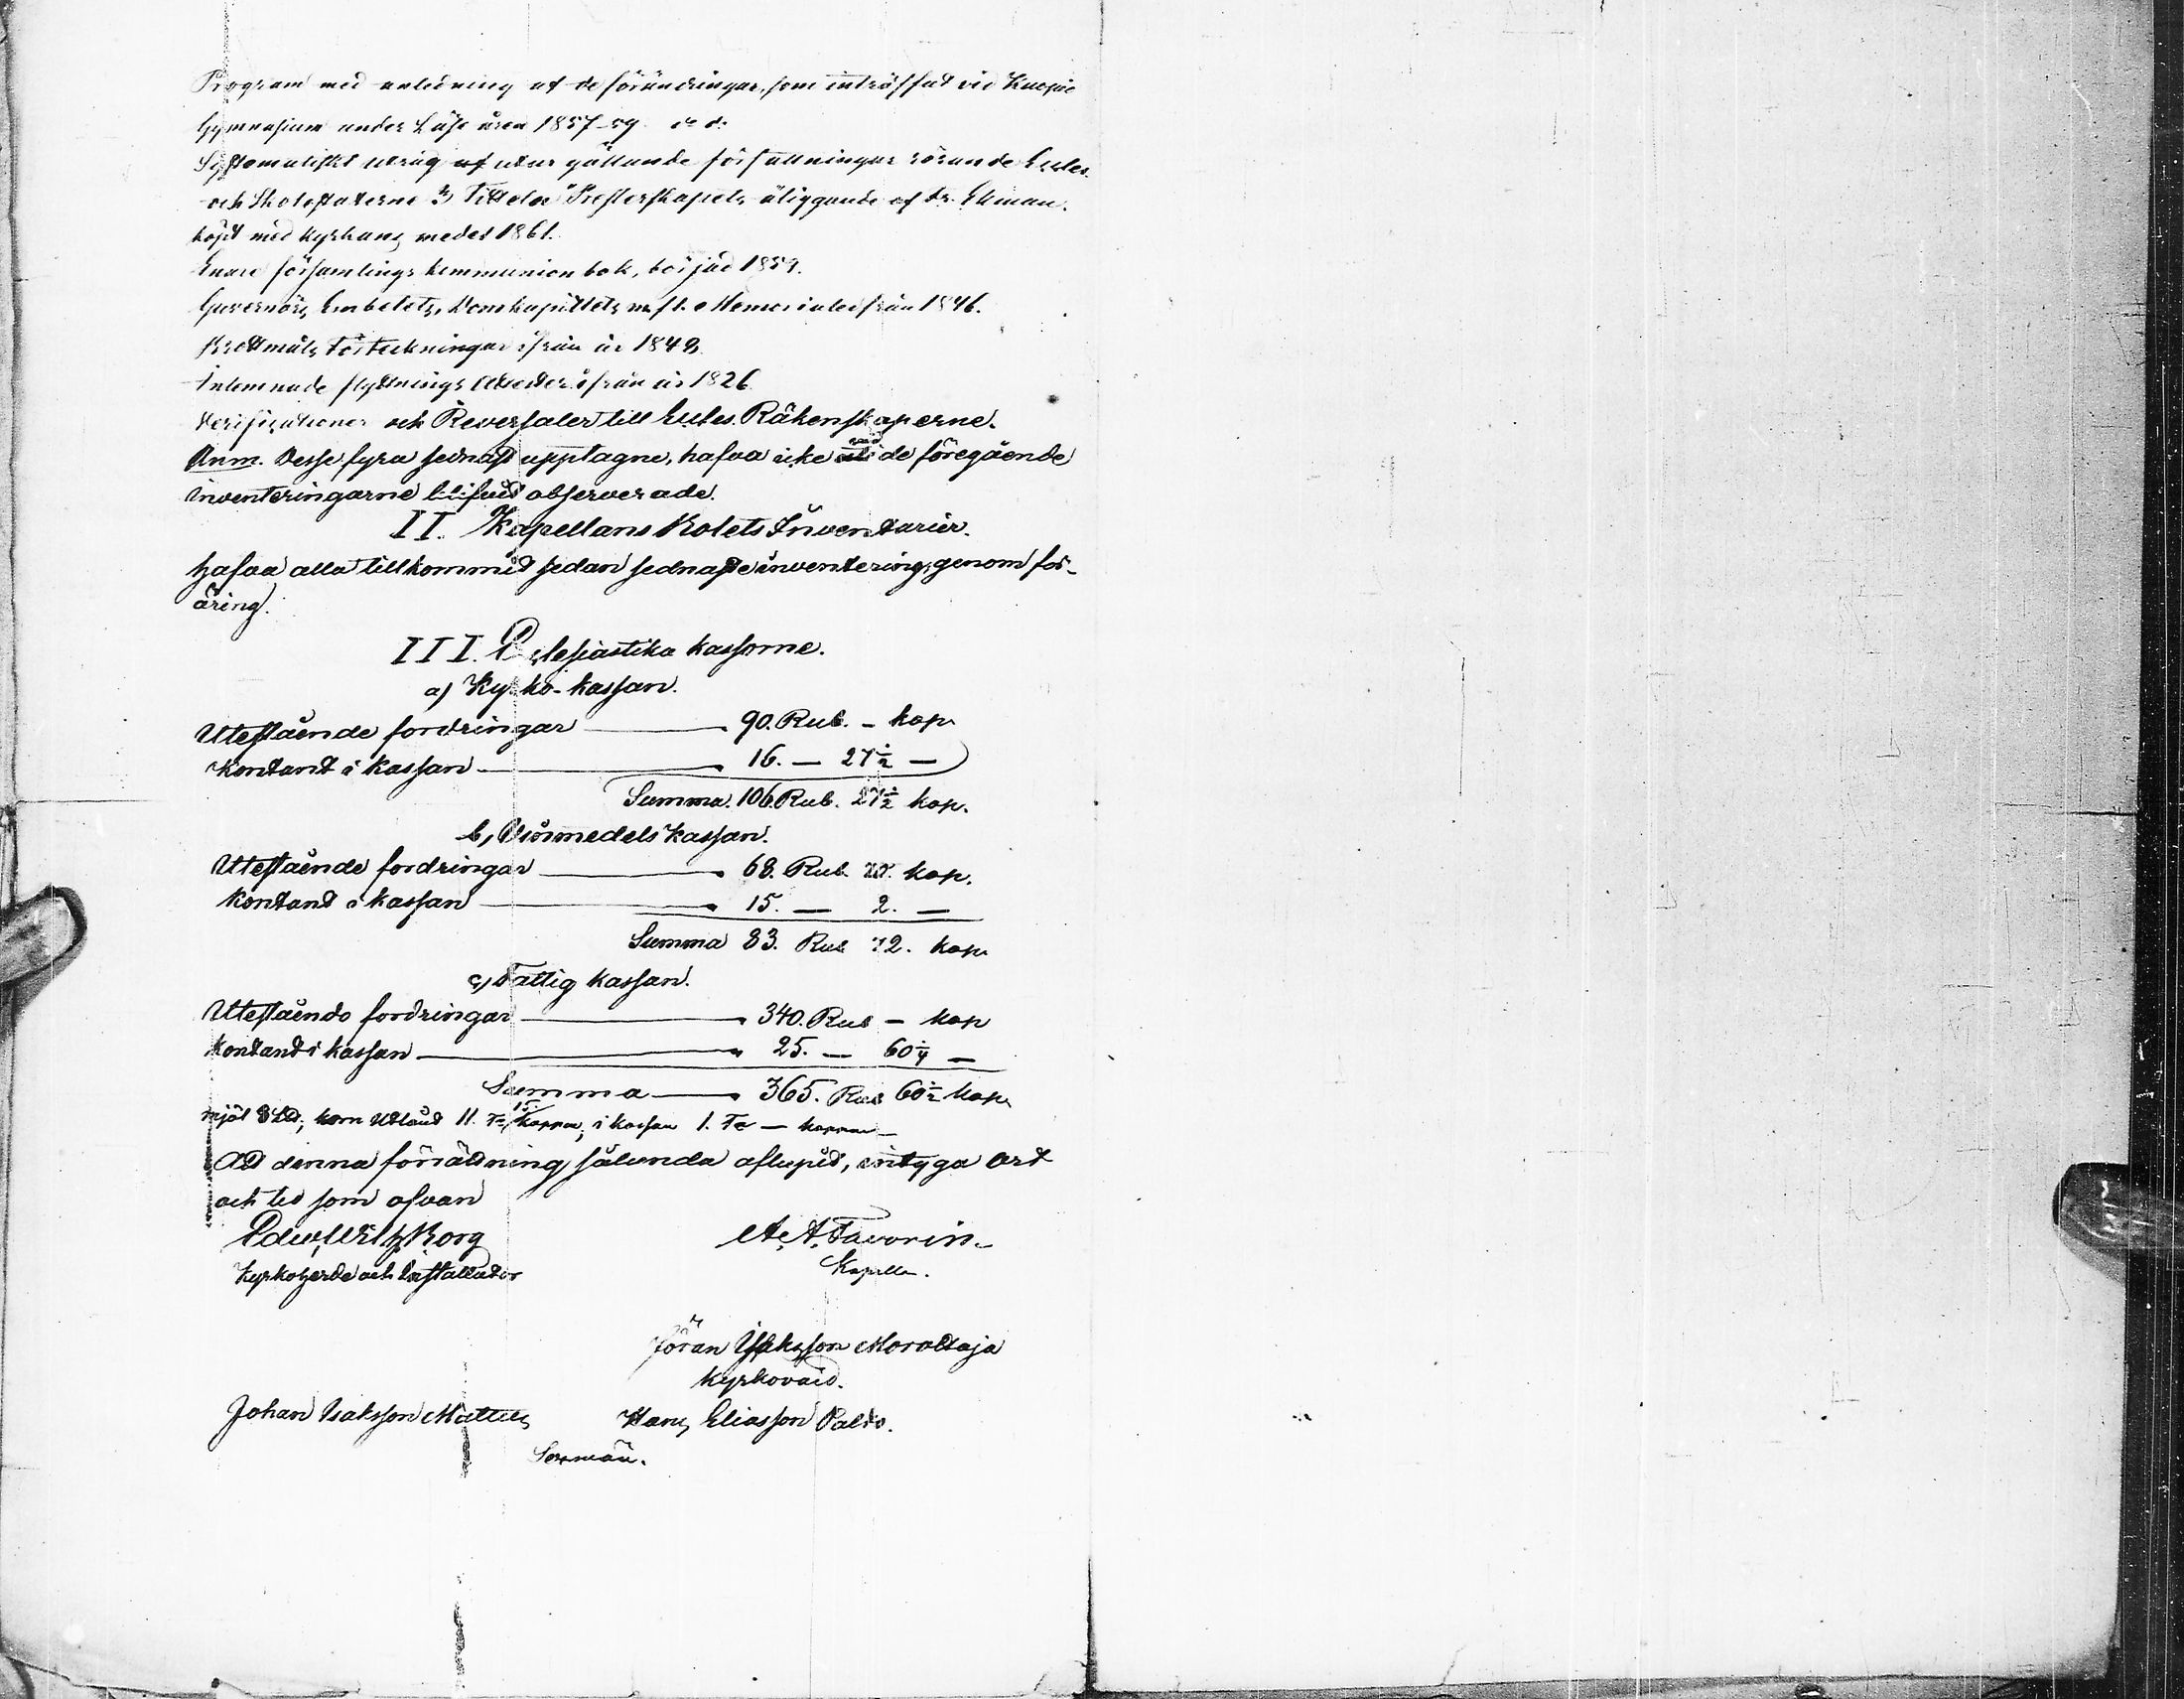 Program med anledning af de förändringar, som inträffat vid Kuopio
Gymnasium under Läse åren 1857-59. d:o d:o
Systematiskt utdrag af utur gällande författningar rörande Eccles.
och Skolestaterne Titteln Presterskapets åliggande af Dr. Ekman.
köpt med kyrkans medel 1861.
Enare församlings kommunion bok, börjad 1859.
Guvernörs Embetets, Domkapitlets m. fl. Memorialer från 1846.
Brottmåls Förteckningar ifrån år 1848.
Inlemnade flyttnings Attester ifrån år 1826.
Verificationer och Reversaler till Eccles. Räkenskaperne.
Anm. Desse fyra sednast upptagne, hafva icke vid de föregående
inventeringarne blifvit observerade.
II. Kapellans Bolets Inventarier.
hafva alla tillkommit sedan sednaste inventering, genom för-
äring.
III. Eclesiastika kassorne.
a) Kyrko-kassan.
Utestående fordringar — 90. Rub. - kop.
Kontant i kassan — 16. — 27½ —
Summa. 106. Rub. 27½ kop.
b, kassan.
Utestående fordringar — 68. Rub. kop.
Kontant i kassan — 15. — 2. —
Summa 83. Rub 72. kop.
c, Fattig kassan.
Utestående fordringar — 340. Rub - kop
kontant i kassan — 25. — 60½ —
Summa — 365. Rub 60½ kop.
mjöl 3 Ltt; korn utlånt 11. Tr 15 kappar, i kassan 1. Tr — kappar —
At denna förrättning sålunda aflupit, intyga Ort
och tid som ofvan
Edw. Wilh. Borg
A. A. Favorin.
Kyrkoherde och Installator
Kapellan.
Jöran Isaksson Morottaja
kyrkovärd.
Johan Isaksson Mattus
Hans Eliasson Palto.
Sexmän.